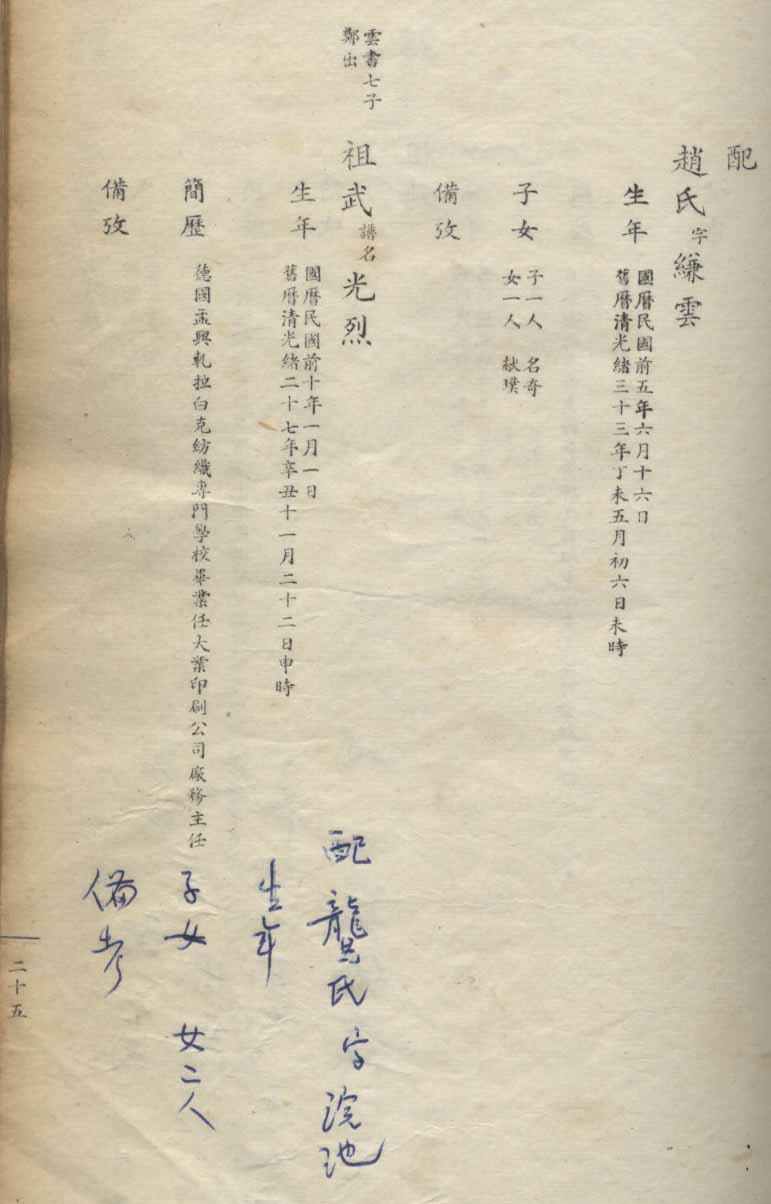 配
趙氏 字 縑雲
生年
國曆民國前五年六月十六日
舊曆清光緒三十三年丁未五月初六日未時
子女
子一人 名奇
女一人 献璞
備攷
雲書七子
鄭出
祖武 譜名 光烈
生年
國曆民國前十年一月一日
舊曆清光緒二十七年辛丑十一月二十二日申時
簡歷
德國孟興軋拉白克紡織專門學校畢業任大業印刷公司廠務主任
備攷
配 龔氏 字浣池
生年
子女 女二人
備考
二十五